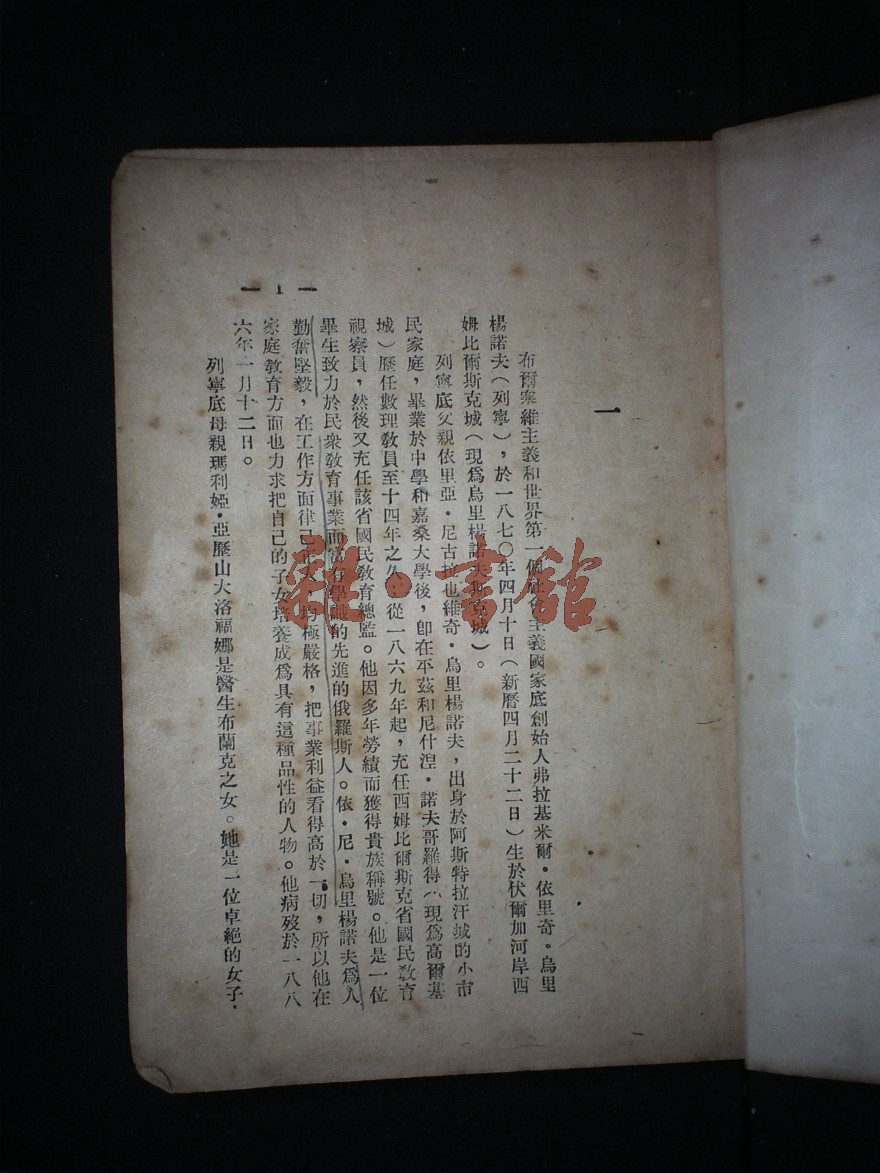 一
布爾塞維主義和世界第一個社會主義國家底創始人弗拉基米爾·依里奇·烏里
楊諾夫（列寧），於一八七〇年四月十日（新曆四月二十二日）生於伏爾加河岸西
姆比爾斯克城（現爲烏里楊諾夫斯克城）。
列寧底父親依里亞·尼古拉也維奇·烏里楊諾夫，出身於阿斯特拉汗城的小市
民家庭，畢業於中學和嘉桑大學後，卽在平茲和尼什湼·諾夫哥羅得（現爲高爾基
城）歷任數理教員至十四年之久。從一八六九年起，充任西姆比爾斯克省國民教育
視察員，然後又充任該省國民教育總監。他因多年勞績而獲得貴族稱號。他是一位
畢生致力於民衆教育事業而富有學識的先進的俄羅斯人。依·尼·烏里楊諾夫爲人
勤奮堅毅，在工作方面律己 均極嚴格，把事業利益看得高於一切，所以他在
家庭教育方面也力求把自己的子女培養成爲具有這種品性的人物。他病歿於一八八
六年一月十二日。
列寧底母親瑪利婭·亞歷山大洛福娜是醫生布蘭克之女。她是一位卓絕的女子·
— 1 —
雜·書館